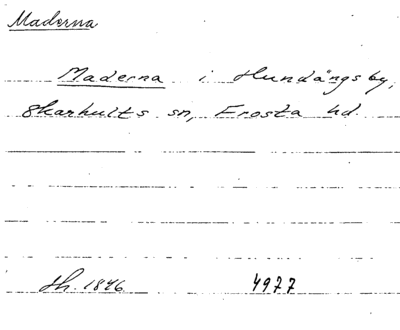 Maderna
Maderna i Hundängsby,
Skarhults sn, Frosta hd.
th. 1846 4977